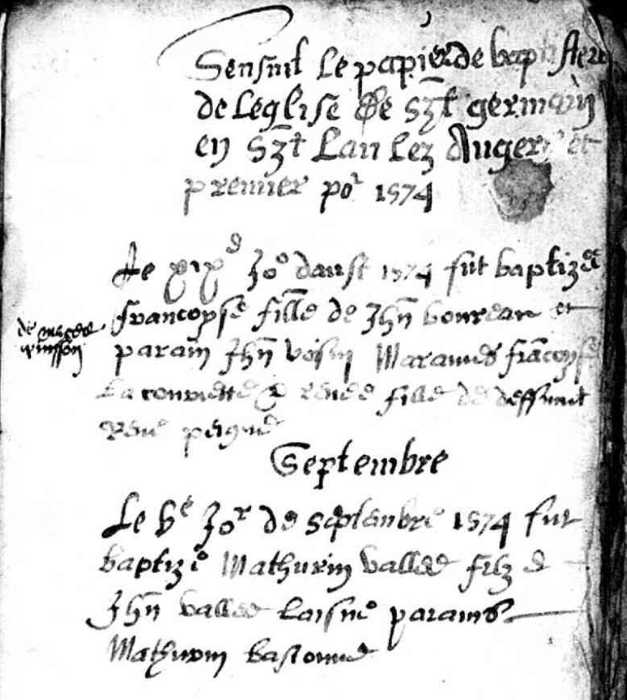 Sensuit le papier de baptistere
de leglise de Sainct germain
en Sainct Lau lez Angers et
premier por 1574
Le xixe Jor daust 1574 fut baptizee
francoyse fille de Jhn boureau et
de
parain Jhn Maraines francoyse
La & renee fille de deffunct
Rene
Septembre
Le Ve Jor de Septembre 1574 fut
baptize Mathurin vallee filz de
Jhn vallee Laisne parains
Mathurin